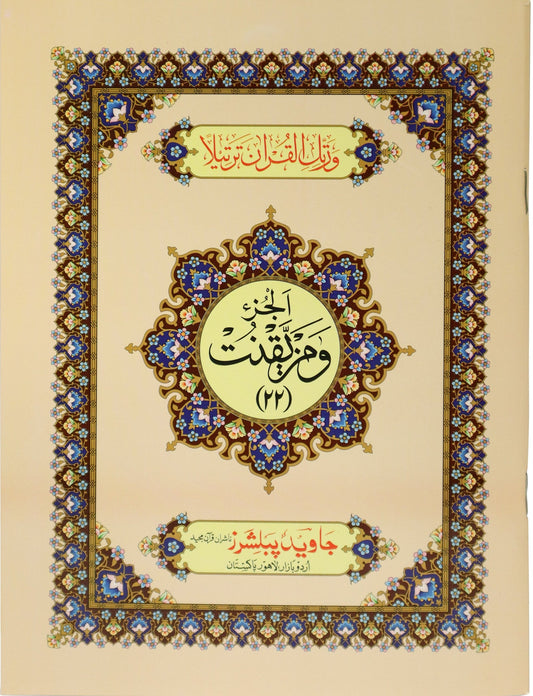 وَرَتِّلِ الْقُرْاٰنَ تَرْتِيْلًا
اَلْجُزْءُ
وَمَنْ يَّقْنُتْ
(۲۲)
جاوید پبلشرز ناشران قرآن مجید
اردو بازار لاهور پاکستان